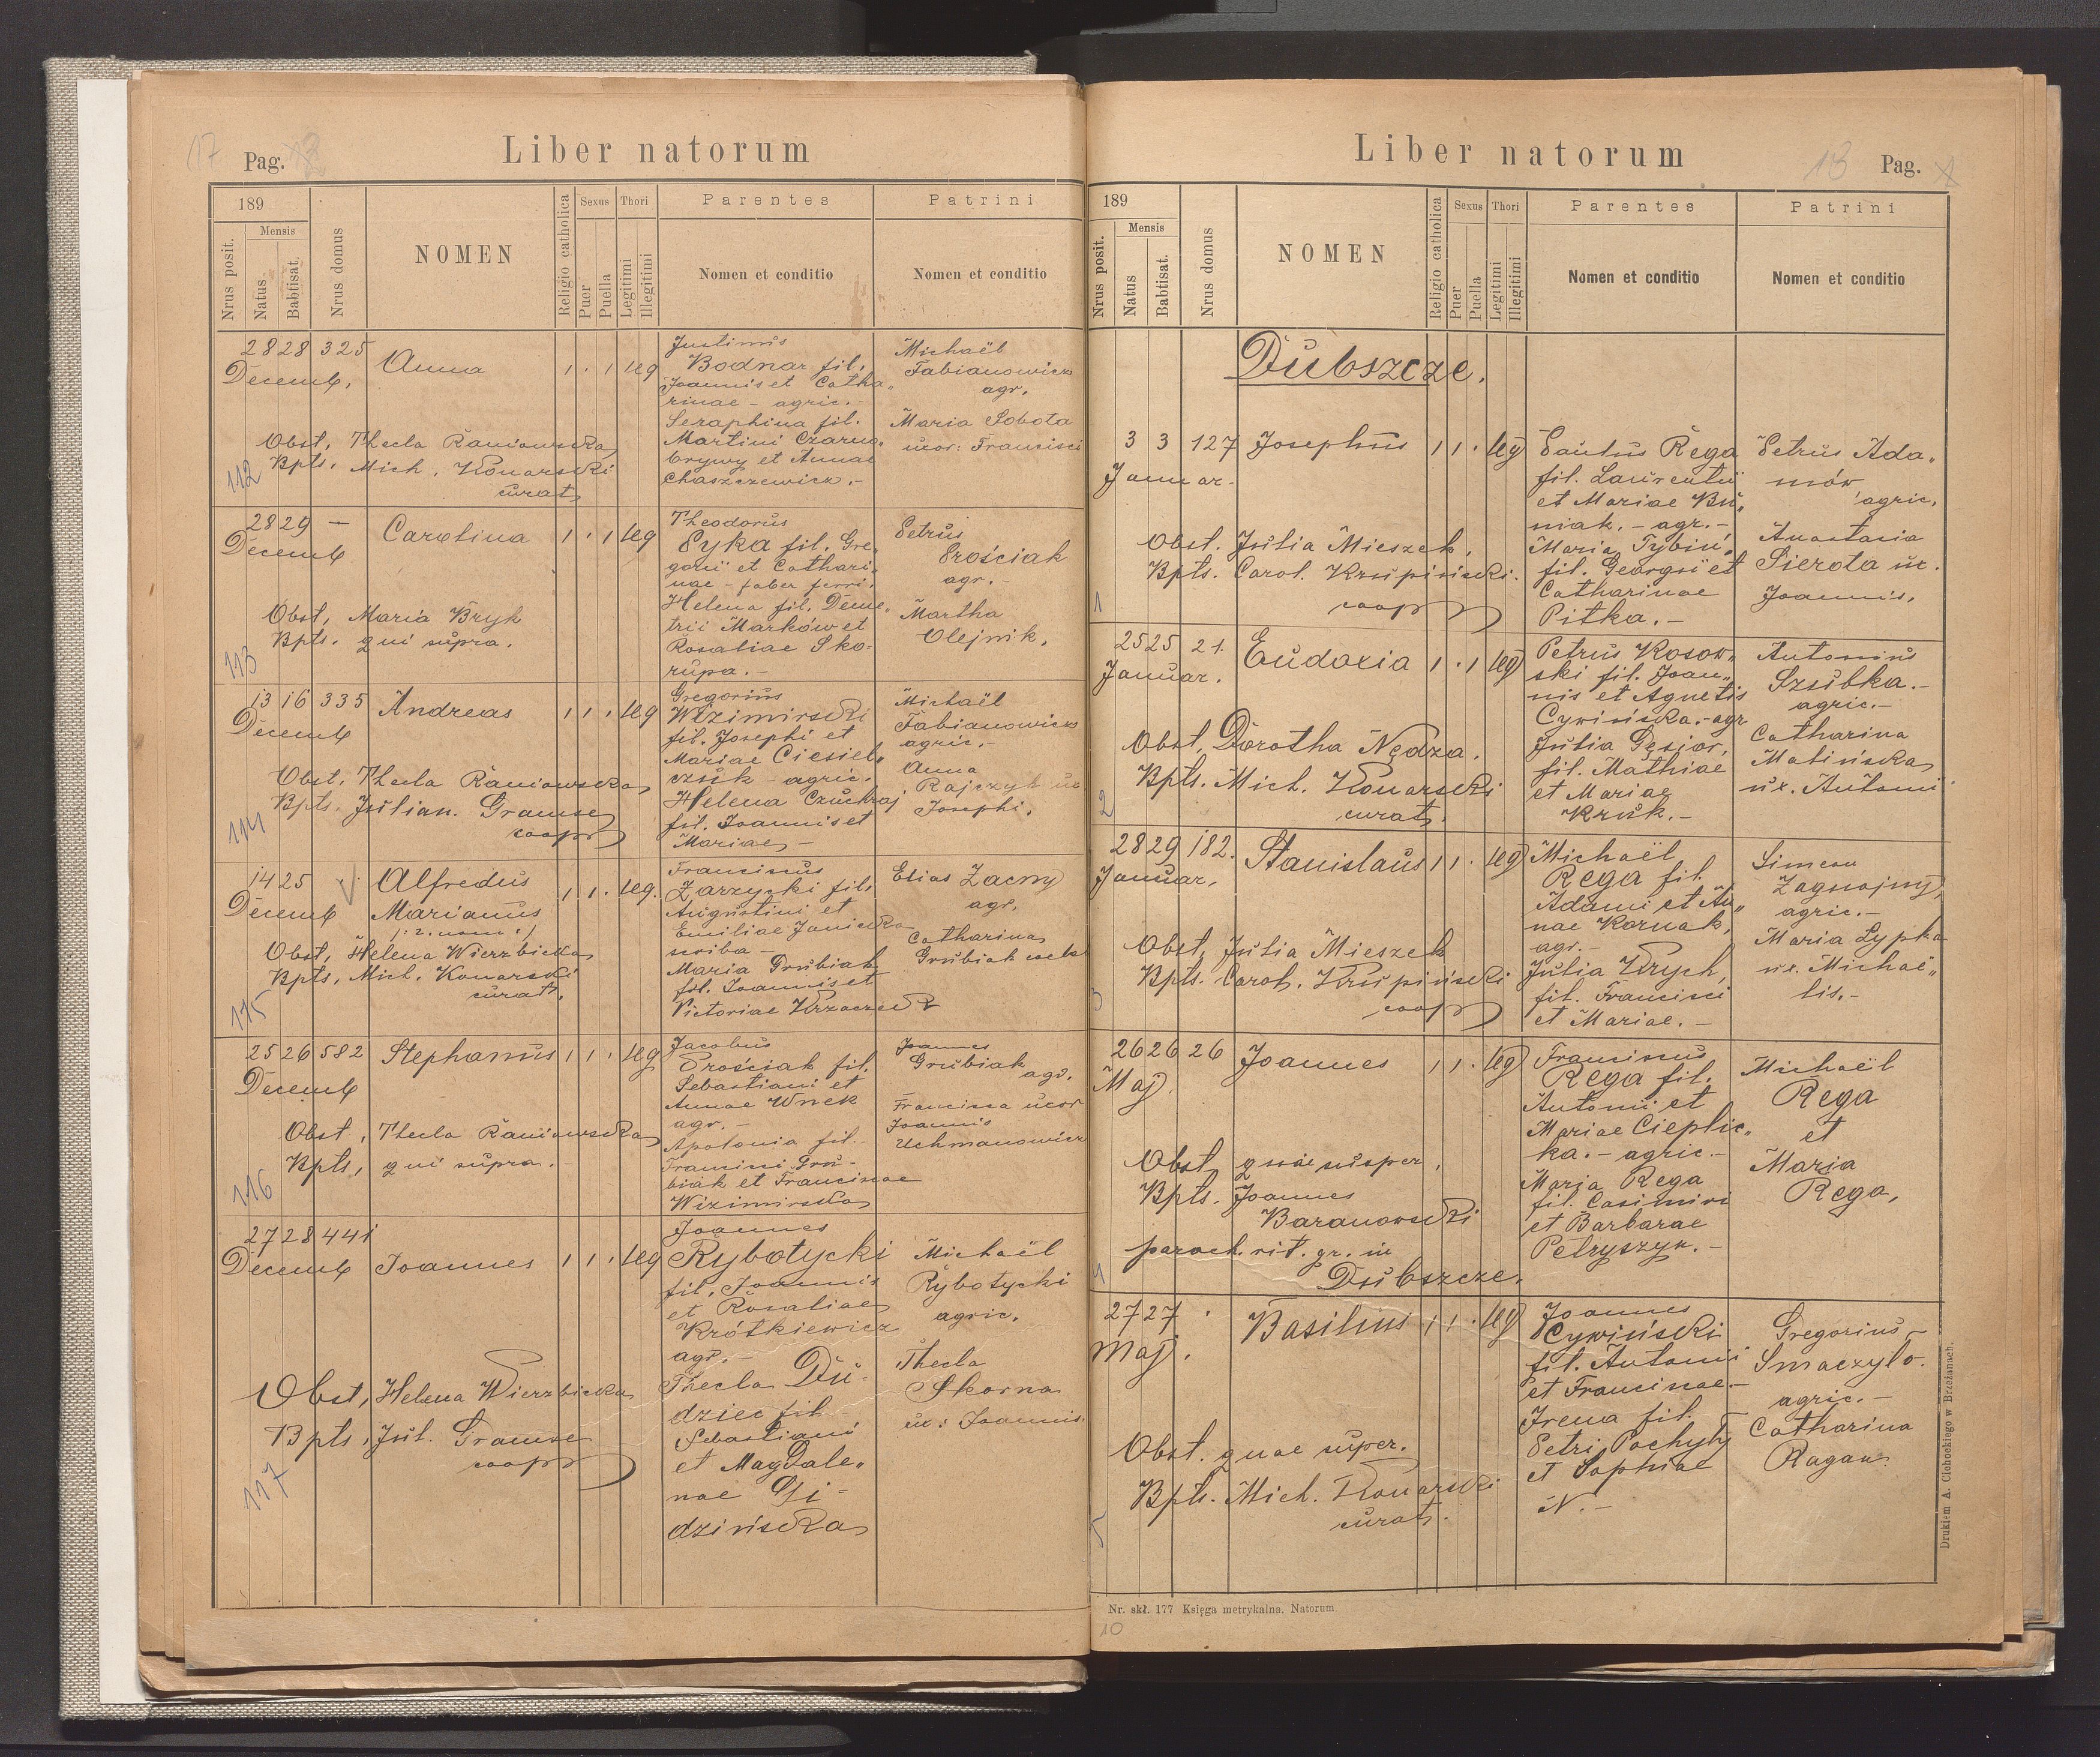 17 Pag.
Liber natorum
189
Mensis
Nrus posit.
Natus
Babtisat.
Nrus domus
NOMEN
Religio catholica
Sexus
Puer
Puella
Thori
Legitimi
Illegitimi
Parentes
Nomen et conditio
Patrini
Nomen et conditio
28 28 325
Decemb.
Anna
1 . 1 leg
Justinus
Bodnar fil.
Joannis et Catha„
rinae - agric. -
Seraphina fil.
Martini Czarno„
brywy et Annae
Chaszczewicz. -
Michaël
Fabianowicz
agr.
Maria Sobota
uxor: Francisci
Obst. Thecla Raniowska
Bpts. Mich. Konarski
curat.
112
28 29 —
Decemb
Carolina
1 . 1 leg
Theodorus
Pyka fil. Gre„
gorii et Cathari„
nae - faber ferri.
Helena fil. Deme„
trii Marków et
Rosaliae Sko-
rupa. -
Petrus
Prościak
agr. -
Martha
Olejnik.
Obst. Maria Bryk
Bpts. qui supra.
113
13 16 335
Decemb
Andreas
1 1 . leg
Gregorius
Wizimirski
fil. Josephi et
Mariae Ciesiel„
czuk - agric.
Helena Czuchraj
fil. Joannis et
Mariae -
Michaël
Fabianowicz
agric. -
Anna
Rajczyk ux.
Josephi.
Obst. Thecla Raniowska
Bpts. Julian. Gramse
coop
114
14 25
Decemb
Alfredus
Marianus
(: 2. nom :)
1 1 . leg.
Franciscus
Zarzycki fil.
Augustini et
Emiliae Janicka
scriba -
Maria Grubiak
fil. Joannis et
Victoriae Krzaczek
Elias Zacny
agr.
Catharina
Grubiak caelebs
Obst. Helena Wierzbicka
Bpts. Mich. Konarski
curat.
115
25 26 582
Decemb
Stephanus
1 1 . leg
Jacobus
Prościak fil.
Sebastiani et
Annae Wnek
agr. -
Apolonia fil.
Francisci Gru-
biak et Franciscae
Wizimirska
Joannes
Grubiak
agr.
Francisca uxor
Joannis
Uchmanowicz
Obst. Thecla Raniowska
Bpts. qui supra.
116
27 28 441
Decemb
Joannes
1 1 . leg
Joannes
Rybotycki
fil. Joannis
et Rosaliae
Krótkiewicz
agr. -
Thecla Du-
dziec fil.
Sebastiani
et Magdale„
nae Gi-
dzińska
Michaël
Rybotycki
agric.
Thecla
Skorna
ux: Joannis.
Obst. Helena Wierzbicka
Bpts. Jul. Gramse
coop
117
Liber natorum
13 Pag.
189
Mensis
Nrus posit.
Natus
Babtisat.
Nrus domus
NOMEN
Religio catholica
Sexus
Puer
Puella
Thori
Legitimi
Illegitimi
Parentes
Nomen et conditio
Patrini
Nomen et conditio
Dubszcze.
3 3 127
Januar.
Josephus
1 1 . leg
Paulus Rega
fil. Laurentii
et Mariae Bu„
niak. - agr. -
Maria Tybiń.
fil. Georgii et
Catharinae
Pitka. -
Petrus Ada„
mów
agric.
Anastasia
Sierota ux.
Joannis.
Obst. Julia Mieszek.
Bpts. Carol. Krupiński.
coop
1
25 25 21
Januar.
Eudoxia
1 . 1 leg
Petrus Kosow„
ski fil. Joan„
nis et Agnetis
Cywińska. - agr
Julia Gęsior,
fil. Mathiae
et Mariae
Kruk. -
Antonius
Szubka. -
agric. -
Catharina
Malińska
ux. Antonii
Obst. Dorotha Nędza.
Bpts. Mich. Konarski
curat.
2
28 29 182.
Januar.
Stanislaus
1 1 . leg
Michaël
Rega fil.
Adami et An„
nae Kornak,
agr. -
Julia Krych,
fil. Francisci
et Mariae. -
Simeon
Zagwojny,
agric. -
Maria Lypka
ux. Michaë„
lis. -
Obst. Julia Mieszek
Bpts. Carol. Krupiński
coop
3
26 26 26
Maj.
Joannes
1 1 . leg
Franciscus
Rega fil.
Antonii et
Mariae Cieplic„
ka. - agric. -
Maria Rega
fil. Casimiri
et Barbarae
Petryszyn. -
Michaël
Rega
et
Maria
Rega,
Obst. quae nusper.
Bpts. Joannes
Baranowski
paroch. rit. gr. in
Dubszcze.
4
27 27 .
Maj.
Basilius
1 1 . leg
Joannes
Cywiński
fil. Antonii
et Franciscae. -
Irena fil.
Petri Pachyty
et Sophiae
N. -
Gregorius
Smaczyło.
agric. -
Catharina
Ragan.
Obst. quae super.
Bpts. Mich. Konarski
curat.
5
Drukiem A. Cichockiego w Brzeżanach.
Nr. skł. 177 Księga metrykalna. Natorum
10